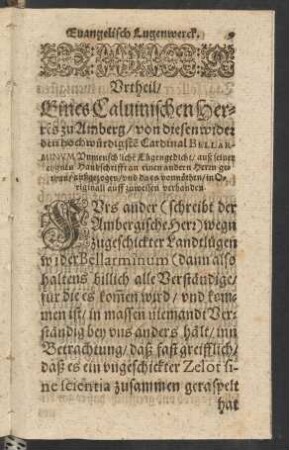 Euangelisch Lugenwerck.
Vrtheil/
Eines Caluinischen Her-
res zu Amberg/ von diesen wider
den hochwürdigste Cardinal BELLAR-
MINVM Vnmenschliche Lügengedicht/ auß seiner
eignen Handschrifft an einen andern Herrn
außgezogen/ vnd da es vonnöthen/ in Or-
riginall auff zuweisen verhanden.
FVrs ander (schreibt der
Ambergische Her) wegn
zugeschickter Landtlügen
wider Bellarminum (dann also
haltens billich alle Verständige/
für die es komen wird/ vnd kom-
men ist/ in massen niemandt Ver-
ständig bey vns anders hält/ inn
Betrachtung/ daß fast greifflich/
daß es ein vngeschickter Zelot si-
ne scientia zusammen geraspelt
hat